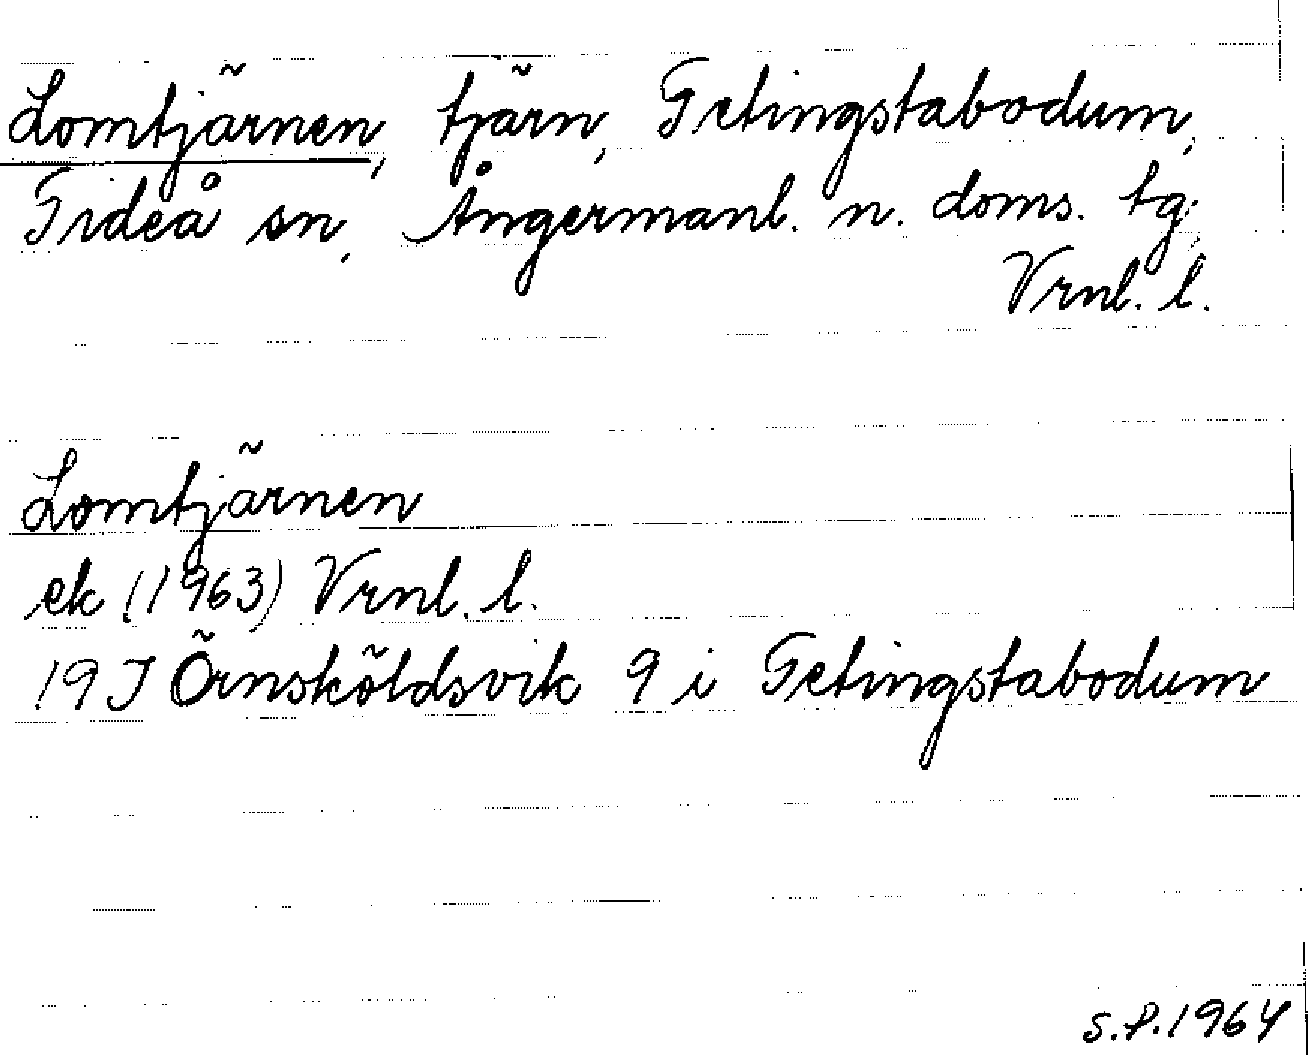 Lomtjärnen, tjärn, Getingstabodum,
Gideå sn, Ångermanl. n. doms. tg,
Vrnl. l.
Lomtjärnen
ek (1963) Vrnl. l.
19J Örnsköldsvik 9 i Getingstabodum
S.P. 1964